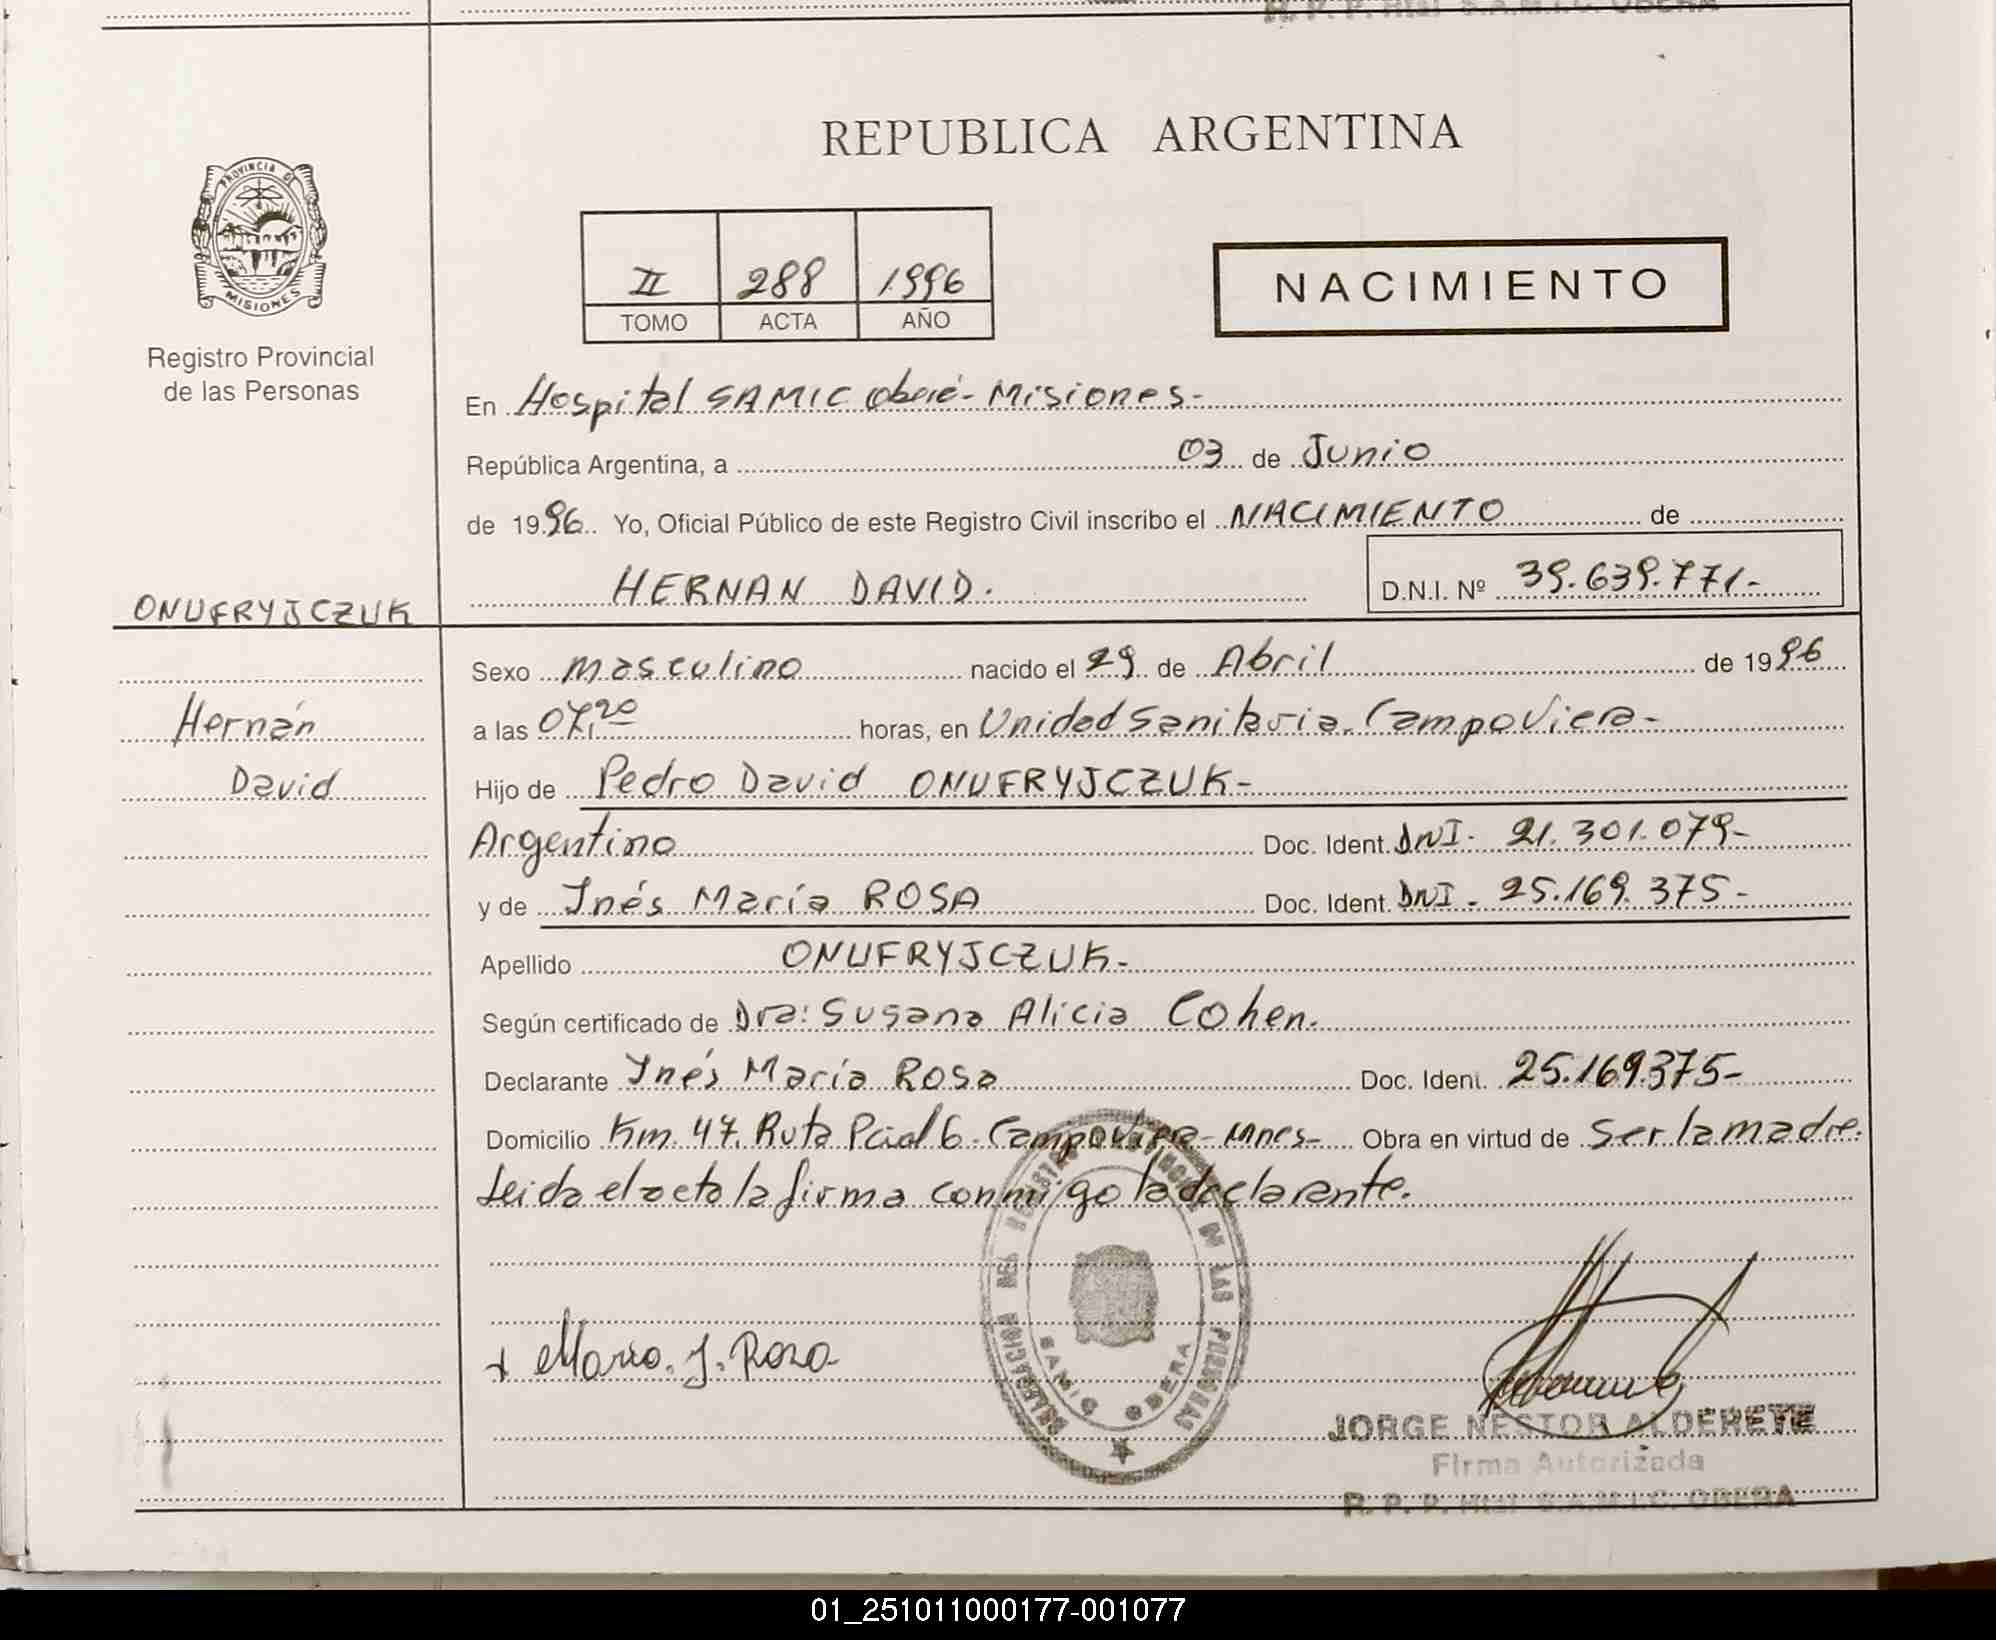 R. P. P. Htal S.A.M.I.C. OBERA
REPUBLICA ARGENTINA
PROVINCIA DE
MISIONES
Registro Provincial
de las Personas
II 288 1996
TOMO ACTA AÑO
NACIMIENTO
En Hospital SAMIC Oberá - Misiones -
República Argentina, a 03 de Junio
de 1996 Yo, Oficial Público de este Registro Civil inscribo el NACIMIENTO de
HERNAN DAVID. D.N.I. Nº 39.639.771-
ONUFRYJCZUK
Hernán
David
Sexo masculino nacido el 29 de Abril de 1996
a las 07,20 horas, en Unidad Sanitaria. Campo Viera -
Hijo de Pedro David ONUFRYJCZUK -
Argentino Doc. Ident. DNI - 21.301.079-
y de Inés María ROSA Doc. Ident. DNI - 25.169.375-
Apellido ONUFRYJCZUK -
Según certificado de Dra: Susana Alicia Cohen.
Declarante Inés María Rosa Doc. Ident. 25.169.375-
Domicilio Km. 47. Ruta Pcial 6 - Campo Viera - Mnes - Obra en virtud de ser la madre.
Leida el acta la firma conmigo la declarante.
DELEGACION DEL REGISTRO PROVINCIAL DE LAS PERSONAS
SAMIC OBERA
JORGE NESTOR ALDERETE
Firma Autorizada
R. P. P. Htal S.A.M.I.C. OBERA
01_251011000177-001077